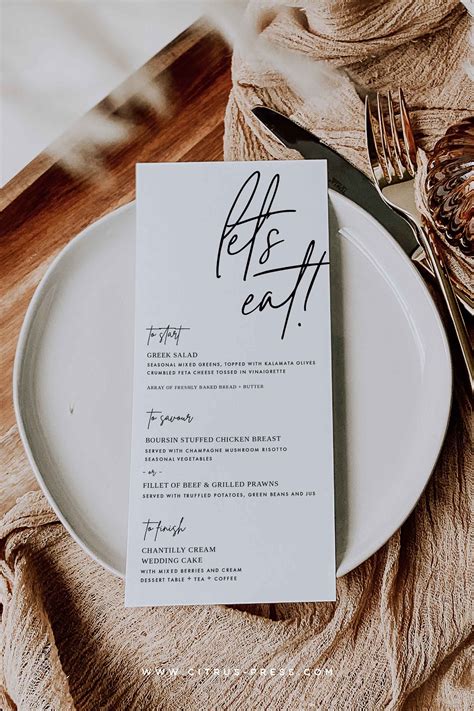 let's
eat!
to start
GREEK SALAD
SEASONAL MIXED GREENS, TOPPED WITH KALAMATA OLIVES
CRUMBLED FETA CHEESE TOSSED IN VINAIGRETTE
ARRAY OF FRESHLY BAKED BREAD + BUTTER
to savour
BOURSIN STUFFED CHICKEN BREAST
SERVED WITH CHAMPAGNE MUSHROOM RISOTTO
SEASONAL VEGETABLES
- or -
FILLET OF BEEF & GRILLED PRAWNS
SERVED WITH TRUFFLED POTATOES, GREEN BEANS AND JUS
to finish
CHANTILLY CREAM
WEDDING CAKE
WITH MIXED BERRIES AND CREAM
DESSERT TABLE + TEA + COFFEE
WWW.CITRUS-PRESS.COM